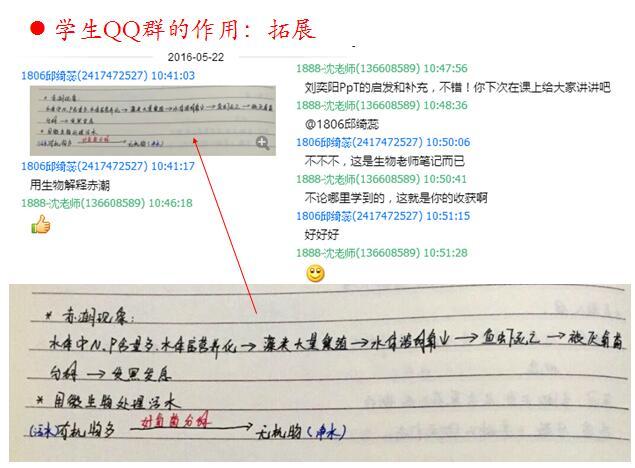 学生QQ群的作用：拓展
2016-05-22
1806邱绮蕊(2417472527) 10:41:03
1806邱绮蕊(2417472527) 10:41:17
用生物解释赤潮
1888-沈老师(136608589) 10:46:18
1888-沈老师(136608589) 10:47:56
刘奕阳PpT的启发和补充，不错！你下次在课上给大家讲讲吧
1888-沈老师(136608589) 10:48:36
@1806邱绮蕊
1806邱绮蕊(2417472527) 10:50:06
不不不，这是生物老师笔记而已
1888-沈老师(136608589) 10:50:41
不论哪里学到的，这就是你的收获啊
1806邱绮蕊(2417472527) 10:51:15
好好好
1888-沈老师(136608589) 10:51:28
* 赤潮现象：
水体中N、P含量多、水体富营养化→藻类大量繁殖→水体溶解氧少→鱼虾死亡→被厌氧菌
分解→发黑发臭
* 用微生物处理污水
好氧菌分解
(污水)有机物多→无机物(净水)